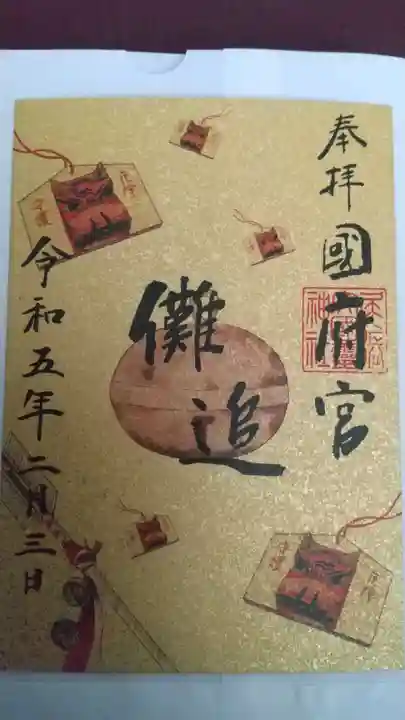 奉拝
國府宮
儺追
令和五年二月三日